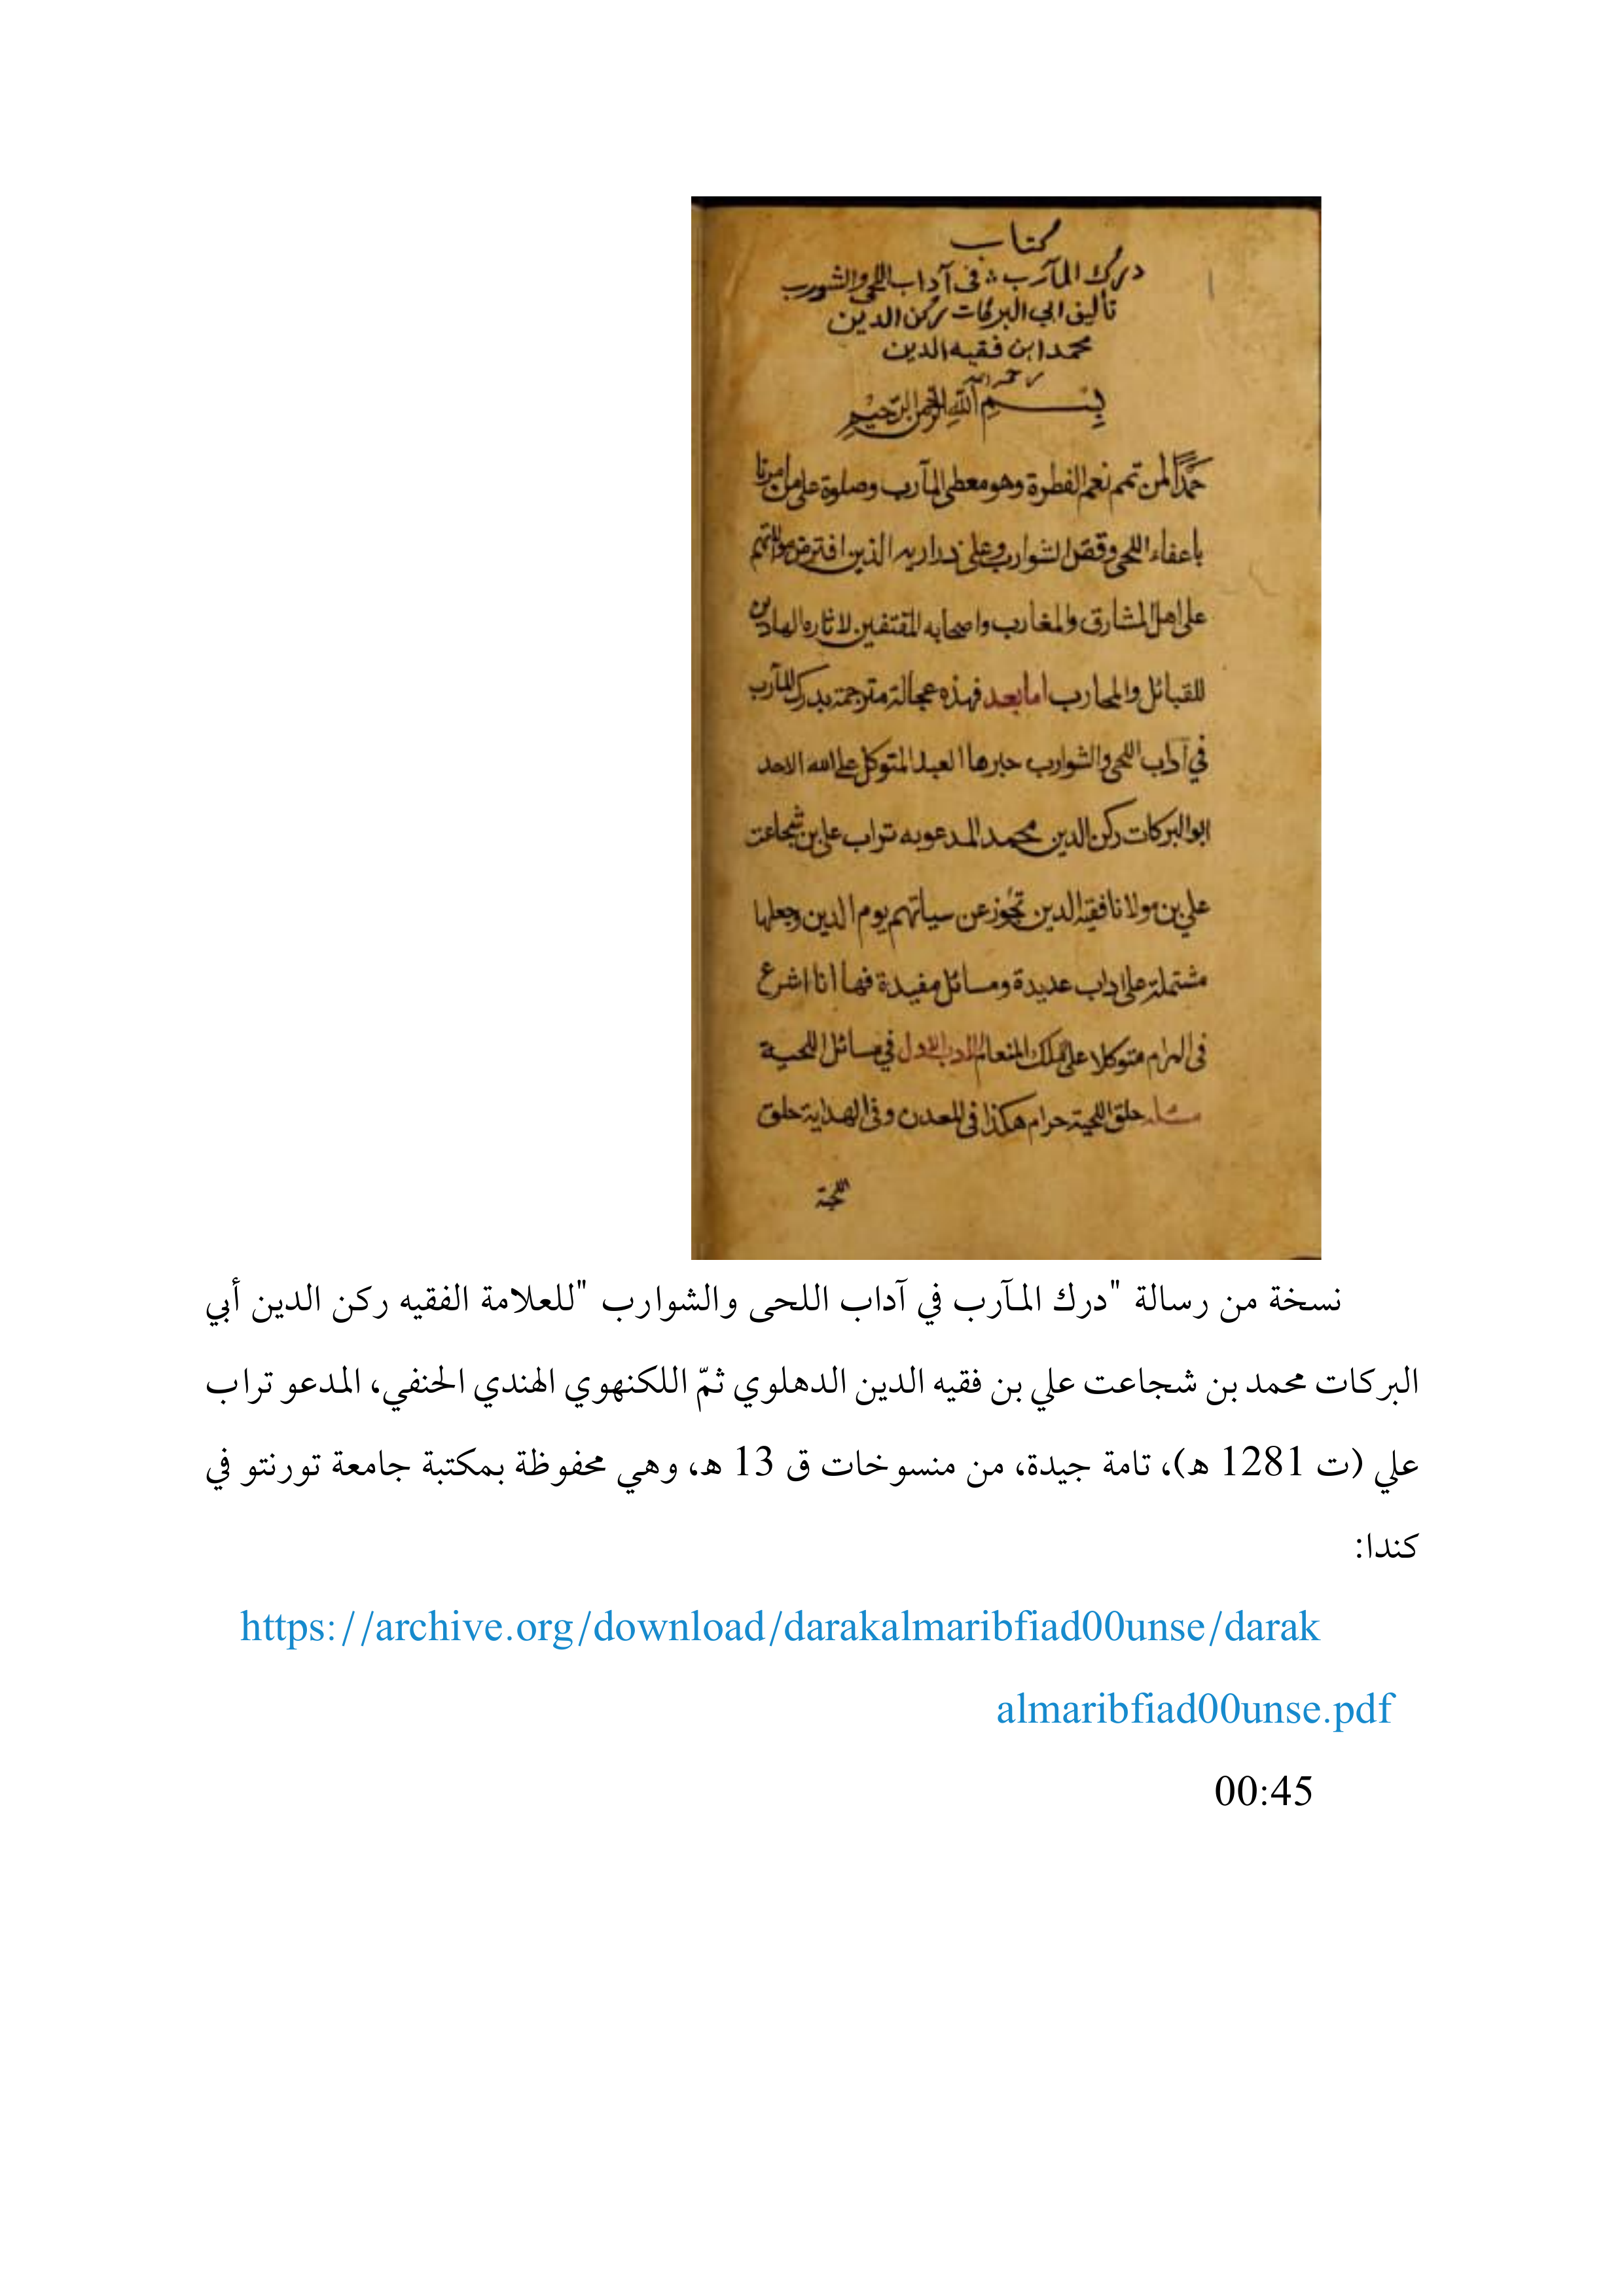 كتاب
درك المآرب في آداب اللحى والشورب
تأليف ابي البركات ركن الدين
محمد ابن فقيه الدين
رحمه الله
بِسْمِ اللّٰهِ الرَّحْمٰنِ الرَّحِيْمِ
حمدًا لمن تمم نعم الفطرة وهو معطي المآرب وصلوة على من امرنا
باعفاء اللحى وقص الشوارب وعلى ذراريه الذين افترض
على اهل المشارق والمغارب واصحابه المقتفين لاثاره الهادين
للقبائل والمحارب اما بعد فهذه عجالة مترجمة بدرك المآرب
في آداب اللحى والشوارب حبرها العبد المتوكل على الله الاحد
ابو البركات ركن الدين محمد المدعو به تراب علي بن شجاعت
علي بن مولانا فقيه الدين تجوز عن سياتهم يوم الدين وجعلها
مشتملة على اداب عديدة ومسائل مفيدة فها انا اشرع
في المرام متوكلا على الملك المنعام الادب الاول في مسائل اللحية
مسئلة حلق اللحية حرام هكذا في المعدن وفي الهداية حلق
اللحية
نسخة من رسالة "درك المآرب في آداب اللحى والشوارب "للعلامة الفقيه ركن الدين أبي
البركات محمد بن شجاعت علي بن فقيه الدين الدهلوي ثمّ اللكنهوي الهندي الحنفي، المدعو تراب
علي (ت 1281 ه)، تامة جيدة، من منسوخات ق 13 ه، وهي محفوظة بمكتبة جامعة تورنتو في
كندا:
https://archive.org/download/darakalmaribfiad00unse/darak
almaribfiad00unse.pdf
00:45